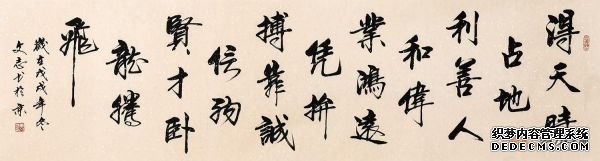 得天時
占地
利善人
和偉
業鴻遠
凭拚
搏靠誠
信
賢才卧
龍騰
飛
歲在戊戌年冬
文志书於京
织梦内容管理系统
DEDECMS.COM